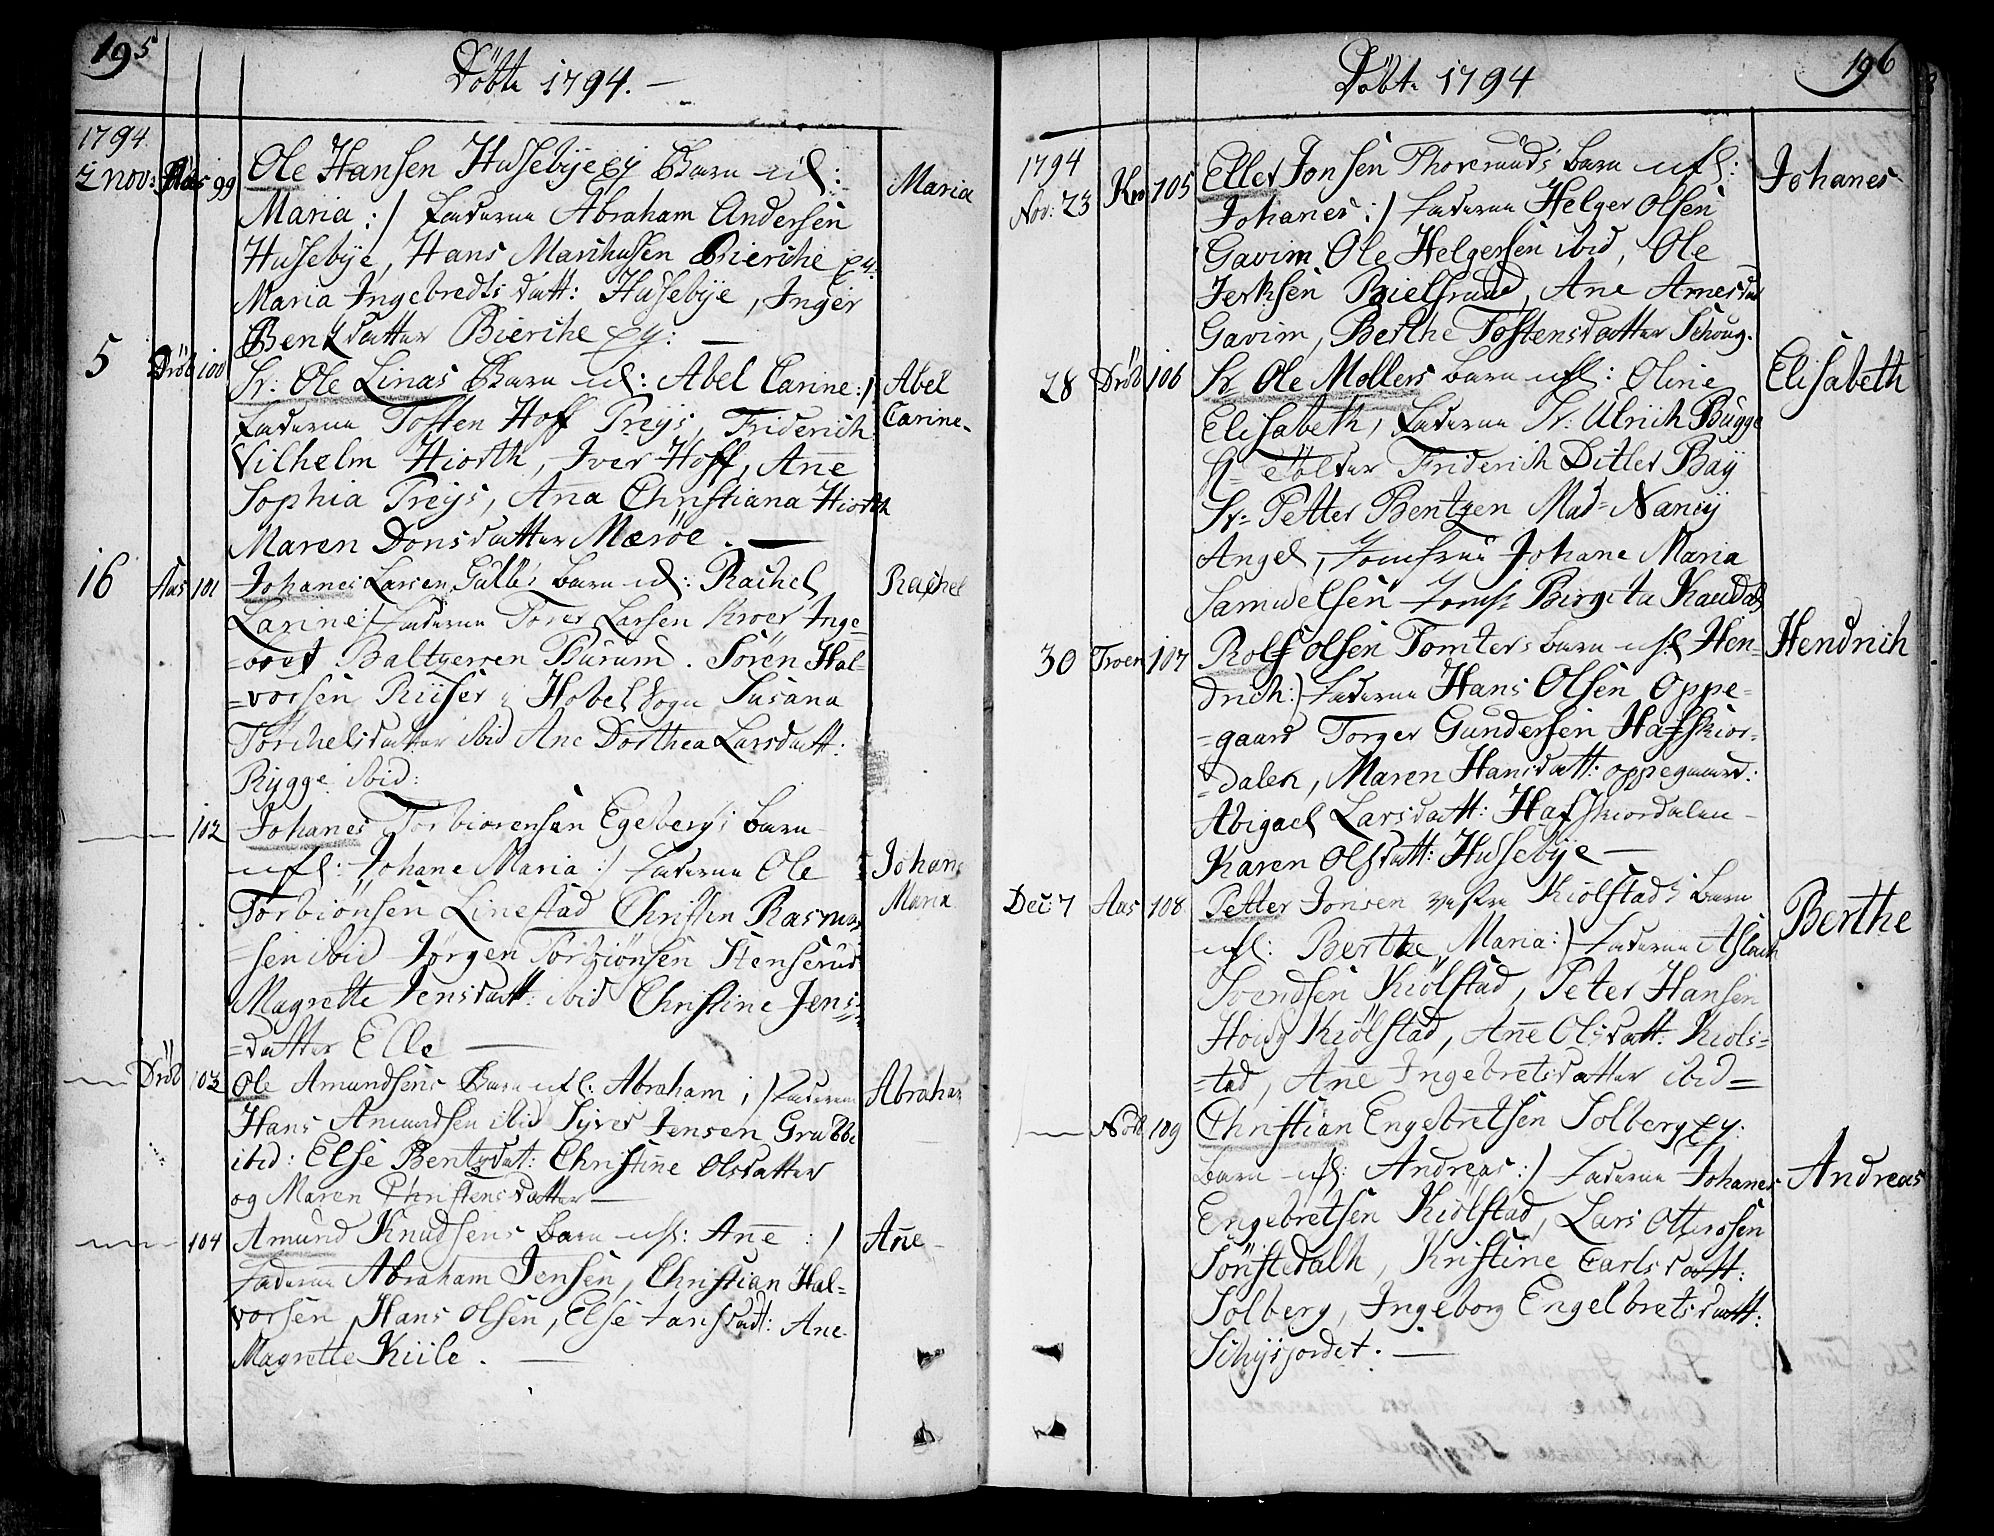 195
Döbte 1794. —
1794
2 Nov: Aas 99 Ole Hansen Hussebye Ey Barn ufl:
Maria
Maria :/ Fadderne Abraham Andersen
Hussebye, Hans Marthusen Bierche Ey:
Maria Ingebredts datt: Hussebye, Inger
Bentzdatter Bierche Ey: —
5 Dröb 100 Sr: Ole Linaes Barn ufl: Abel Carine :/
Abel
Carine
Fadderne Tosten Hoff Preys, Friderich
Vilhelm Hiorth, Iver Hoff, Añe
Sophia Preys, Aña Christiana Hiorth
Maren Donsdatter Mæröe. —
16 Aas 101 Johanes Larsen Gulli's Barn ufl: Rachel
Rachel
Larine :/ Fadderne Torer Larsen Kroer Inge=
=bret Baltzersen Burum. Sören Hal=
=vorsen Riiser i Hobel Sogn Susana
Torchelsdatter ibid Ane Dorthea Larsdatt:
Rygge ibid:
102 Johanes Torbiorensen Egebergs barn
ufl: Johane Maria :/ Fadderne Ole
Johane
Maria
Torbiönsen Linestad Christen Rasmus
=sen ibid Jörgen Torbiönsen Stenserud
Magrette Jensdatt: ibid Christine Jens=
=datter Elle —
Dröb 103 Ole Amundsens Barn ufl: Abraham ;/ Fadderne
Abraham
Hans Amundsen ibid Syver Jensen Grubbe
ibid: Else Bentzdat: Christiñe Olsdatter
og Maren Christensdatter —
104 Amund Knudsens barn ufl: Añe :/
Añe
Fadderne Abraham Jensen, Christian Hal=
vorsen, Hans Olsen, Else Larsdatt: Ane
Magrette Kiile. —
196
Döbte 1794
1794
Nov: 23 Kro 105 Eller Jonsen Thorerud's barn ufl:
Johanes
Johanes :/ Fadderne Helger Olsen
Gavim, Ole Helgersen ibid, Ole
Jerksen Bielsrud, Ane Arnesdat
Gavim, Berthe Tostensdatter Schoug.
28 Dröb 106 Sr Ole Mollers barn ufl: Oline
Elisabeth
Elisabeth, Fadderne Sr: Ulrich Bugge
Friderich Ditlev Baÿ
Sr: Petter Bentzen Mad= Nancÿ
Angel, Jomfrue Johane Maria
Samuelsen Jomf: Birgita Kaudal
30 Froen 107 Rolf Olsen Tomters barn ufl Hen=
Hendrich
drich :/ Fadderne Hans Olsen Oppe=
=gaard Torger Gundersen Hafskior=
=dalen, Maren Hansdatt: Oppegaard:
Abigael Larsdatt: Hafskiordalen —
Karen Olsdatt: Hussebye —
Dec: 7 Aas 108 Petter Jonsen vestre Kiolstads Barn
Berthe
ufl: Berthe Maria :/ Fadderne Aslach
Svendsen Kiölstad, Peter Hansen
Houg Kiölstad, Añe Olsdatt: Kiols=
=tad, Añe Ingebretsdatter ibid =
Nödb 109 Christian Engebretsen Solberg Ey:
barn ufl: Andreas :/ Fadderne Johanes
Andreas
Engebretsen Kiölstad, Lars Ottersen
Sönstedalk, Kristine Carlsdatt:
Solberg, Ingeborg Engelbretsdatt:
Schysjordet. —